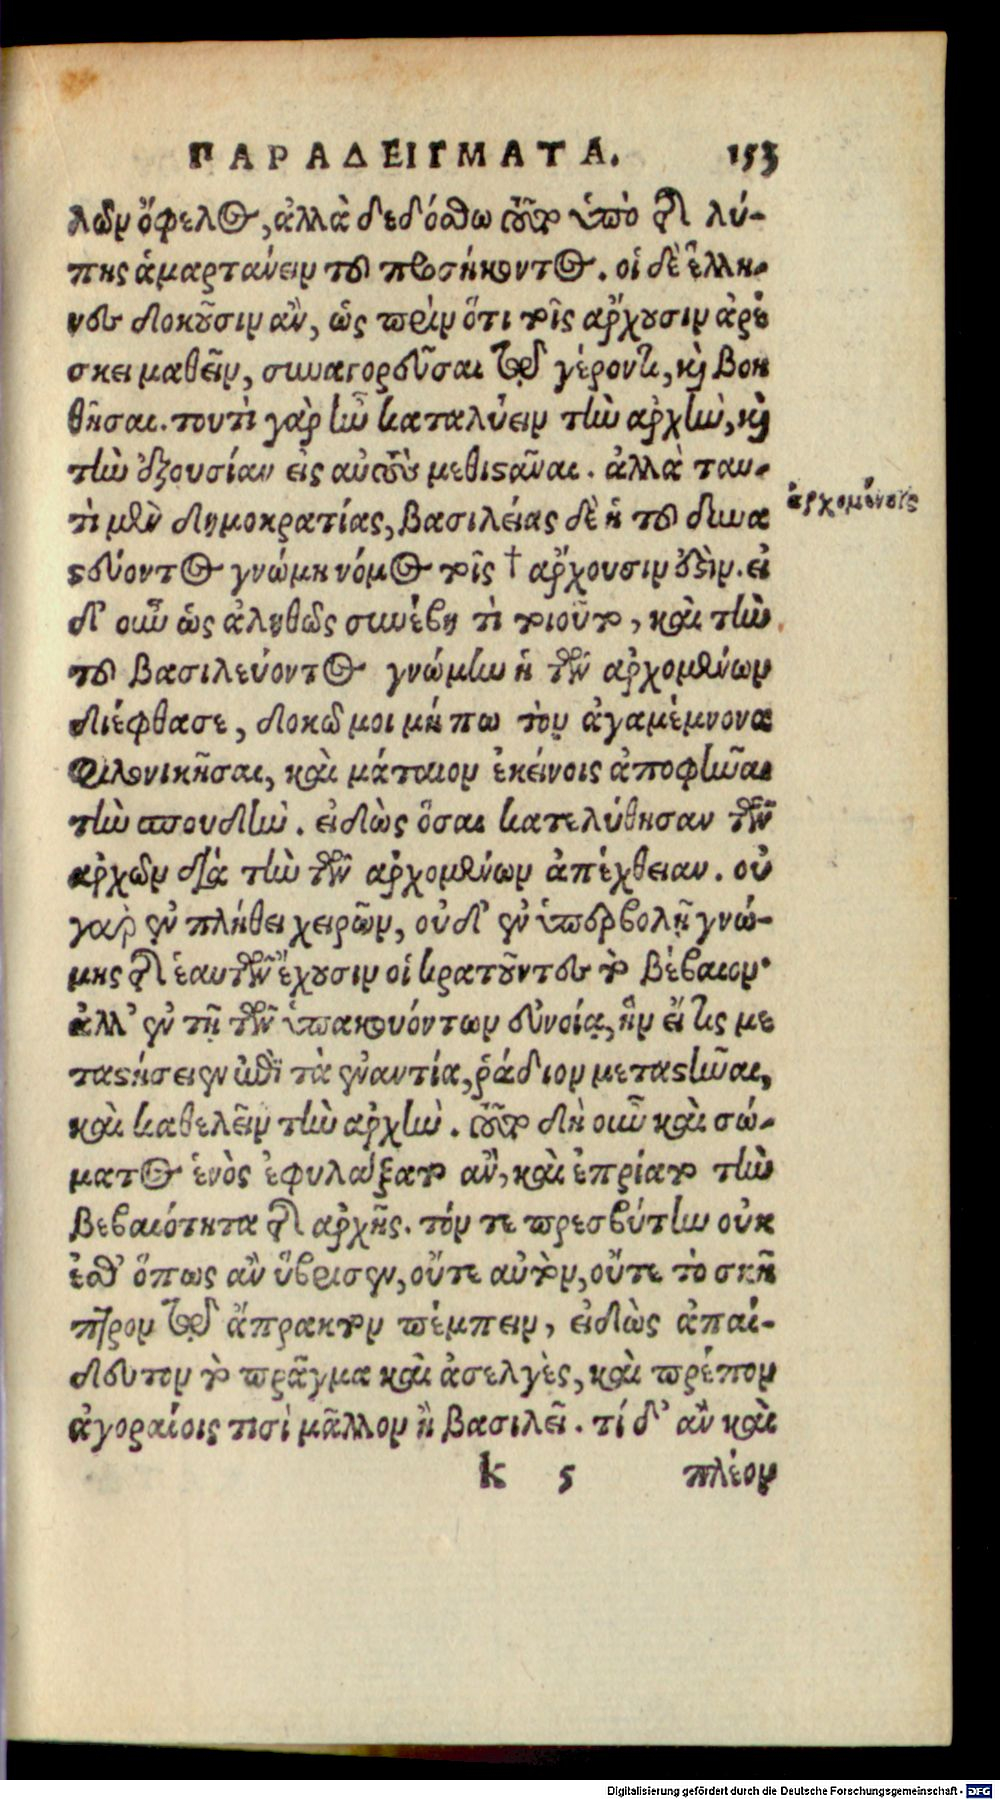 ΠΑΡΑΔΕΙΓΜΑΤΑ. 153
λων ὄφελος, ἀλλὰ δεδόσθω τοῦτο ὑπὸ τῆς λύ-
πης ἁμαρτάνειν τοῦ προσήκοντος. οἱ δὲ ἕλλη-
νες δοκοῦσιν ἂν, ὡς πρὶν ὅτι τοῖς ἄρχουσιν ἀρέ
σκει μαθεῖν, συναγορεῦσαι τῷ γέροντι, καὶ βοη
θῆσαι. τουτὶ γὰρ ἦν καταλύειν τὴν ἀρχὴν, καὶ
τὴν ἐξουσίαν εἰς αὐτοὺς μεθιστᾶναι. ἀλλὰ ταυ-
τὶ μὲν δημοκρατίας, βασιλείας δὲ ἡ τοῦ δυνα
στεύοντος γνώμη νόμος τοῖς † ἄρχουσιν ἐστὶν. εἰ
ἀρχομένοις
δ' οὖν ὡς ἀληθῶς συνέβη τὶ τοιοῦτο, καὶ τὴν
τοῦ βασιλεύοντος γνώμην ἡ τῶν ἀρχομένων
διέφθασε, δοκῶ μοι μήπω τὸν ἀγαμέμνονα
φιλονικῆσαι, καὶ μάταιον ἐκείνοις ἀποφῆναι
τὴν σπουδὴν. εἰδὼς ὅσαι κατελύθησαν τῶν
ἀρχῶν διὰ τὴν τῶν ἀρχομένων ἀπέχθειαν. οὐ
γὰρ ἐν πλήθει χειρῶν, οὐδ' ἐν ὑπερβολῇ γνώ-
μης τῆς ἑαυτῶν ἔχουσιν οἱ κρατοῦντες τὸ βέβαιον·
ἀλλ' ἐν τῇ τῶν ὑπακουόντων εὐνοίᾳ, ἣν εἴ τις με
ταστήσειεν ἐπὶ τὰ ἐναντία, ῥάδιον μεταστῆναι,
καὶ καθελεῖν τὴν ἀρχὴν. τοῦτο δὴ οὖν καὶ σώ-
ματος ἑνὸς ἐφυλάξατο ἂν, καὶ ἐπρίατο τὴν
βεβαιότητα τῆς ἀρχῆς. τόν τε πρεσβύτην οὐκ
ἔσθ' ὅπως ἂν ὕβρισεν, οὔτε αὐτὸν, οὔτε τὸ σκῆ
πτρον τῷ ἄπρακτον πέμπειν, εἰδὼς ἀπαί-
δευτον τὸ πρᾶγμα καὶ ἀσελγὲς, καὶ πρέπον
ἀγοραίοις τισὶ μᾶλλον ἢ βασιλεῖ. τί δ' ἂν καὶ
k 5 πλέον
Digitalisierung gefördert durch die Deutsche Forschungsgemeinschaft - DFG